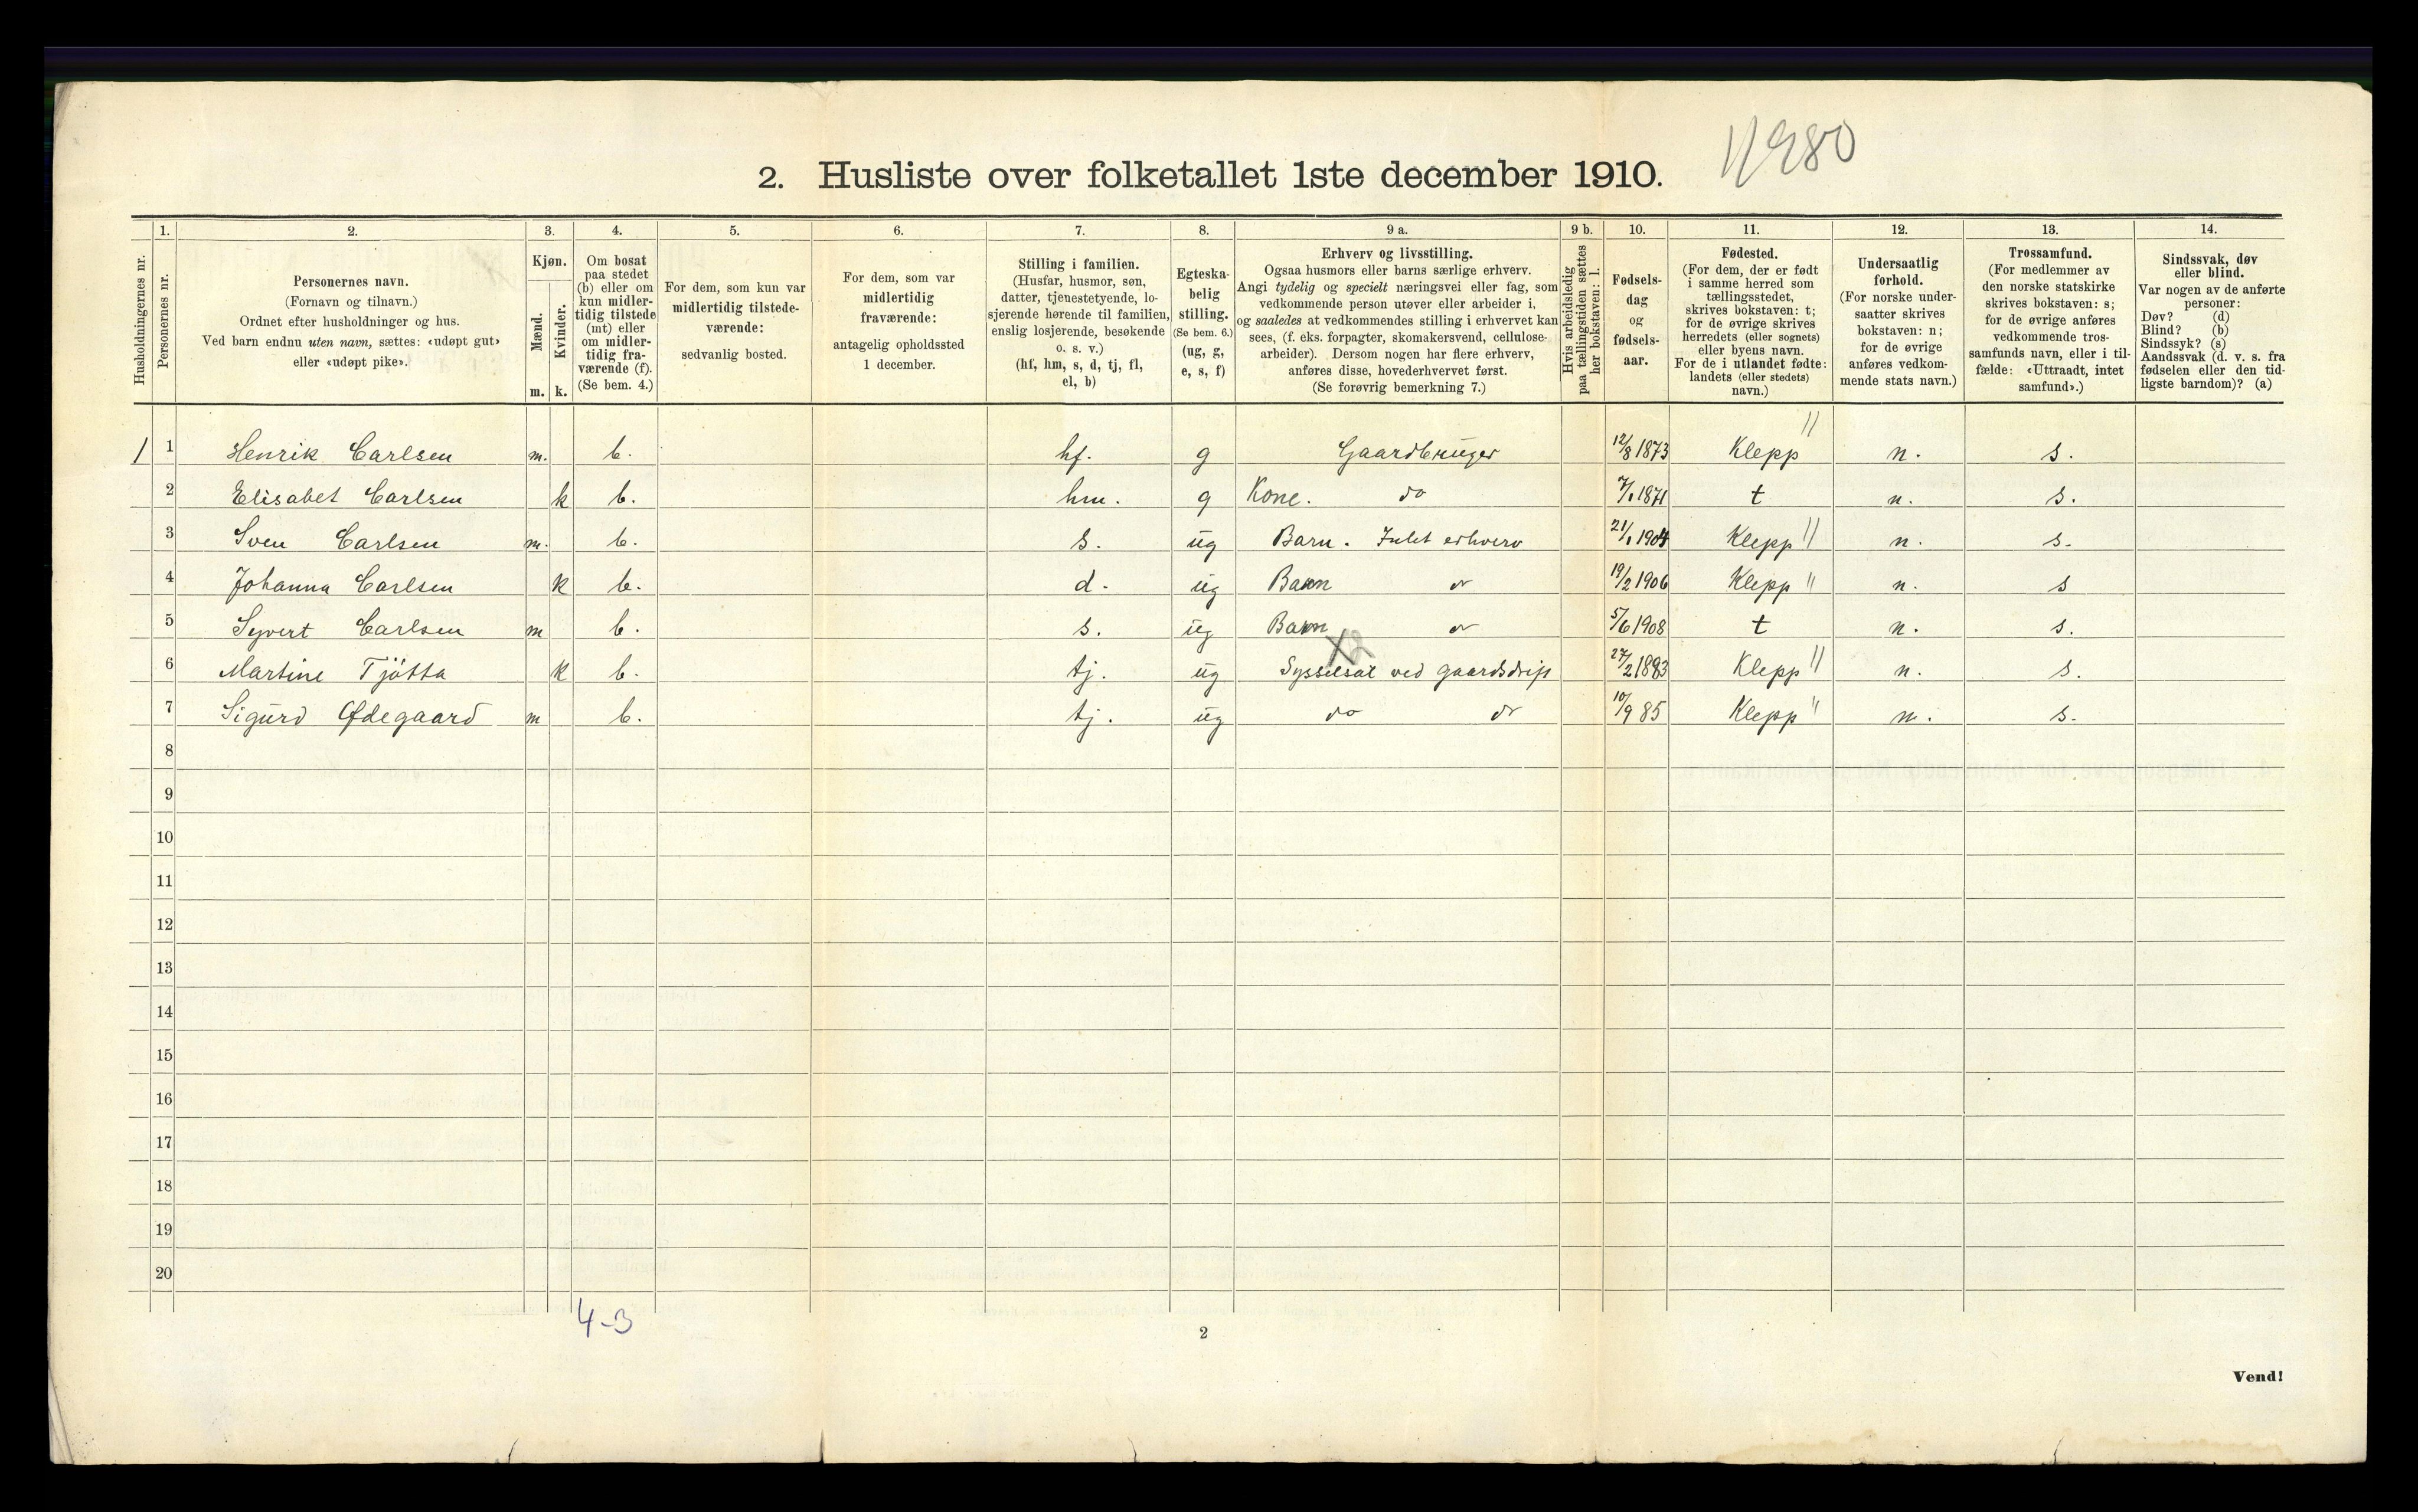 11980
2. Husliste over folketallet 1ste december 1910.
Husholdningernes nr.
1.
Personernes nr.
2.
Personernes navn.
(Fornavn og tilnavn.)
Ordnet efter husholdninger og hus.
Ved barn endnu uten navn, sættes: «udøpt gut»
eller «udøpt pike».
3.
Kjøn.
Mænd.
Kvinder.
m. k.
4.
Om bosat
paa stedet
(b) eller om
kun midler-
tidig tilstede
(mt) eller
om midler-
tidig fra-
værende (f).
(Se bem. 4.)
5.
For dem, som kun var
midlertidig tilstede-
værende:
sedvanlig bosted.
6.
For dem, som var
midlertidig
fraværende:
antagelig opholdssted
1 december.
7.
Stilling i familien.
(Husfar, husmor, søn,
datter, tjenestetyende, lo-
sjerende hørende til familien,
enslig losjerende, besøkende
o. s. v.)
(hf, hm, s, d, tj, fl,
el, b)
8.
Egteska-
belig
stilling.
(Se bem. 6.)
(ug, g,
e, s, f)
9 a.
Erhverv og livsstilling.
Ogsaa husmors eller barns særlige erhverv.
Angi tydelig og specielt næringsvei eller fag, som
vedkommende person utøver eller arbeider i,
og saaledes at vedkommendes stilling i erhvervet kan
sees, (f. eks. forpagter, skomakersvend, cellulose-
arbeider). Dersom nogen har flere erhverv,
anføres disse, hovederhvervet først.
(Se forøvrig bemerkning 7.)
9 b.
Hvis arbeidsledig
paa tællingstiden sættes
her bokstaven: l.
10.
Fødsels-
dag
og
fødsels-
aar.
11.
Fødested.
(For dem, der er født
i samme herred som
tællingsstedet,
skrives bokstaven: t;
for de øvrige skrives
herredets (eller sognets)
eller byens navn.
For de i utlandet fødte:
landets (eller stedets)
navn.)
12.
Undersaatlig
forhold.
(For norske under-
saatter skrives
bokstaven: n;
for de øvrige
anføres vedkom-
mende stats navn.)
13.
Trossamfund.
(For medlemmer av
den norske statskirke
skrives bokstaven: s;
for de øvrige anføres
vedkommende tros-
samfunds navn, eller i til-
fælde: «Uttraadt, intet
samfund».)
14.
Sindssvak, døv
eller blind.
Var nogen av de anførte
personer:
Døv? (d)
Blind? (b)
Sindssyk? (s)
Aandssvak (d. v. s. fra
fødselen eller den tid-
ligste barndom)? (a)
1 1 Henrik Carlsen m. b. hf. g Gaardbruger 12/8 1873 Klepp " n. s.
2 Elisabet Carlsen k b. hm. g Kone. do 7/1 1871 t n. s.
3 Sven Carlsen m. b. s. ug Barn. Intet erhverv 21/1 1904 Klepp " n. s.
4 Johanna Carlsen k b. d. ug Barn do 19/2 1906 Klepp " n. s
5 Syvert Carlsen m b. s. ug Barn do 5/6 1908 t n. s.
6 Martine Tjötta k b. tj. ug Sysselsat ved gaardsdrift 27/2 1883 Klepp " n. s.
7 Sigurd Ødegaard m b. tj. ug do do 10/9 85 Klepp " n. s.
8
9
10
11
12
13
14
15
16
17
18
19
20
4-3
2
Vend!